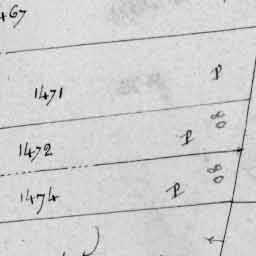 467
1471 P
1472 P 80
1474 P 80